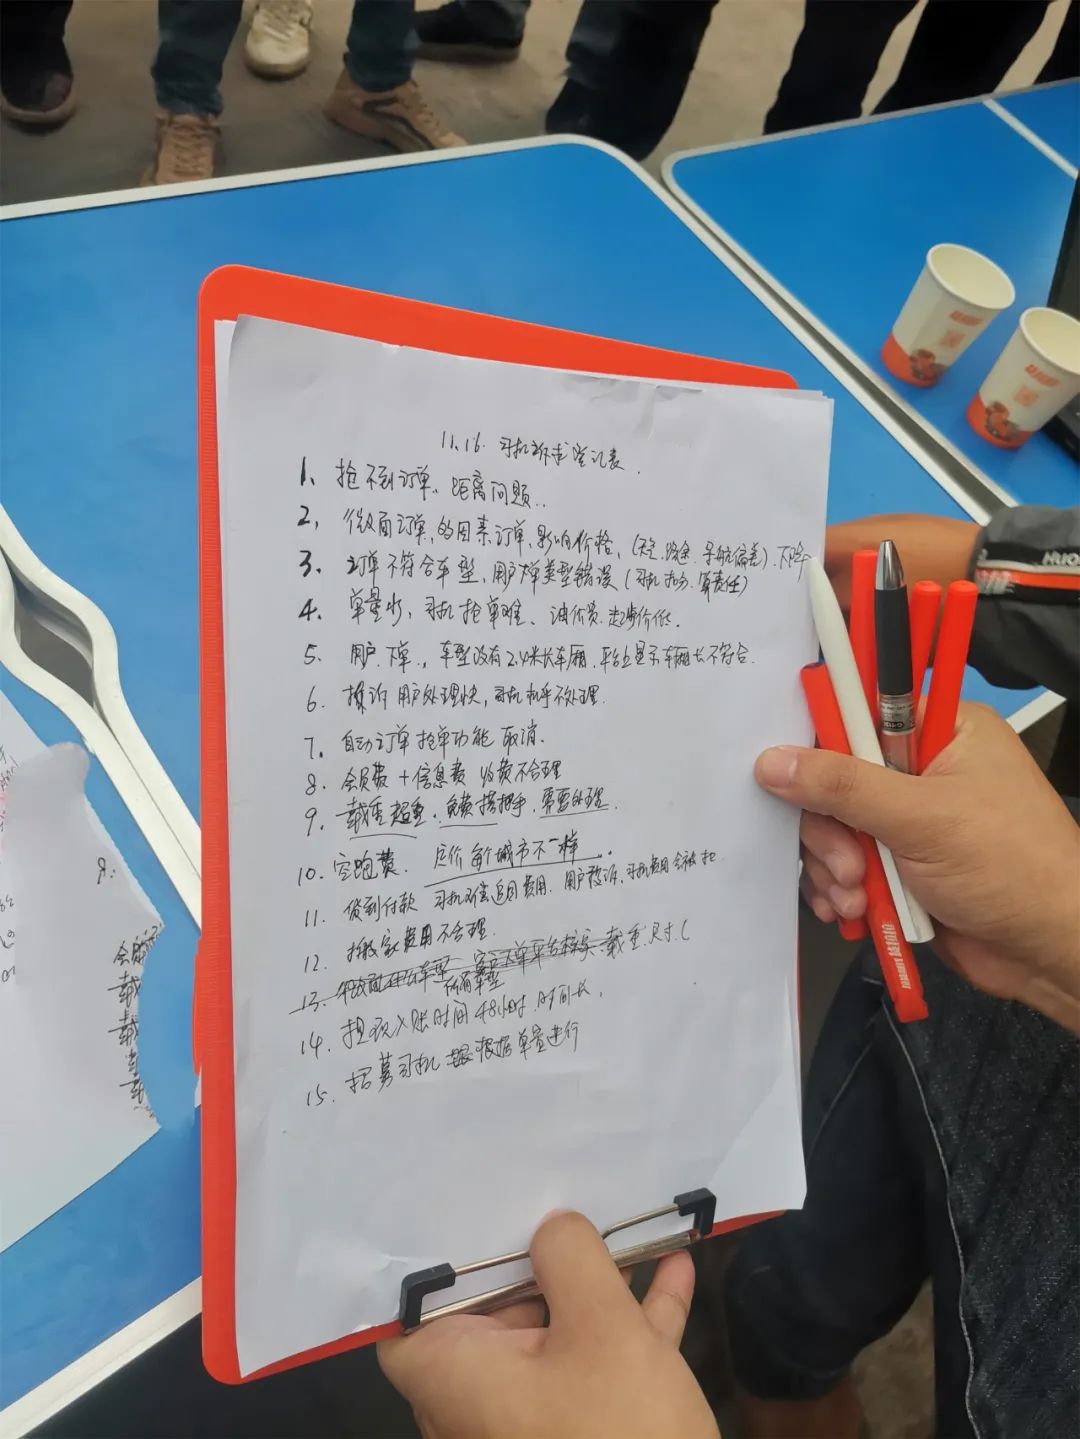 11.16. 司机诉求登记表.
1、抢不到订单、距离问题..
2, 订单, 的因素订单、影响价格, (天气、路途、导航偏差).下降
3、订单不符合车型、用户下单类型错误(司机扣分、算责任)
4、单量少、司机抢单难、油价贵、起步价低.
5、用户下单., 车型没有2.4米长车厢、平台上显示车厢长不符合.
6、投诉 用户处理快, 司机几乎不处理.
7、自动订单抢单功能取消.
8、会员费+信息费 收费不合理
9、载重超重、免费搭把手、需要处理.
10、空跑费、定价每个城市不一样..
11、货到付款 司机 追回费用. 用户投诉、司机费用会被扣
12、搬家费用不合理.
13、车型 下单平台核实 载重.尺寸(
车型
14、提现入账时间48小时、时间长.
15、招募司机 根据单量进行
8:
会
载
载
载